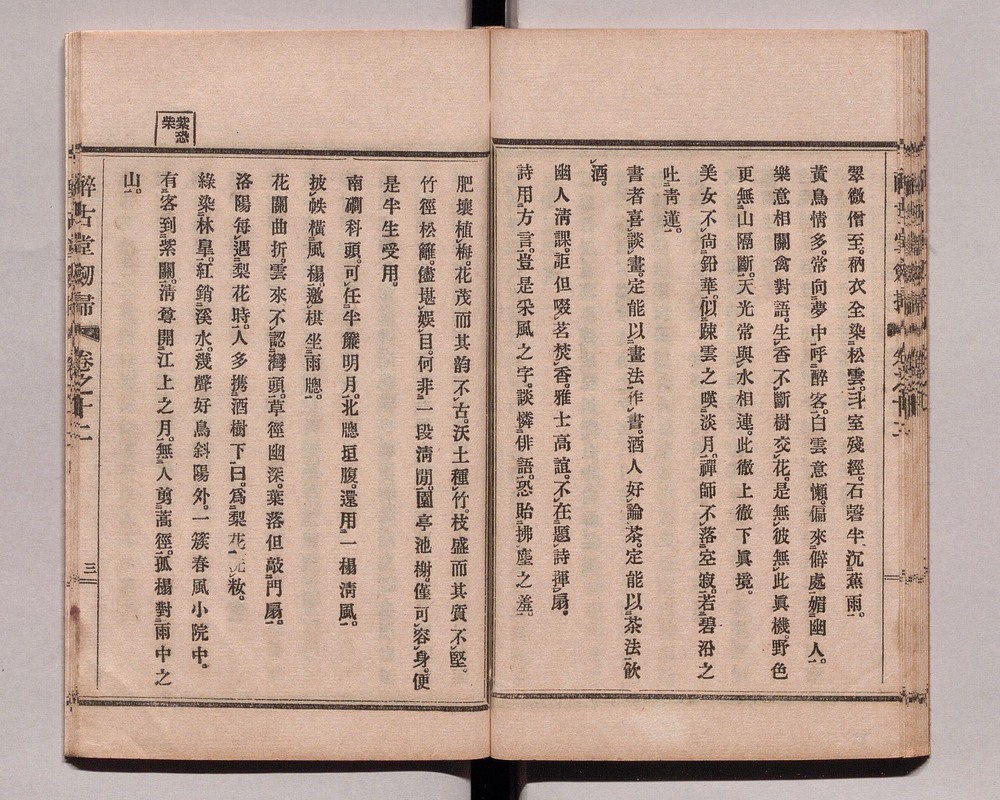 翠微僧至。衲衣全染松雲。斗室殘經。石磬半沉蕉雨。
黃鳥情多。常向夢中呼醉客。白雲意懶。偏來僻處媚幽人。
樂意相關禽對語。生香不斷樹交花。是無彼無此眞機。野色
更無山隔斷。天光常與水相連。此徹上徹下眞境。
美女不尚鉛華。似踈雲之暎淡月。禪師不落空寂。若碧沼之
吐靑蓮。
書者喜談畫。定能以畫法作書。酒人好論茶。定能以茶法飮
酒。
幽人淸課。詎但啜茗焚香。雅士高誼。不在題詩揮扇。
詩用方言。豈是采風之字。談憐俳語。恐貽拂塵之羞。
肥壤植梅。花茂而其韵不古。沃土種竹。枝盛而其質不堅。
竹徑松籬。儘堪娛目。何非一段淸閒。園亭池榭。僅可容身。便
是半生受用。
南磵科頭。可任半簾明月。北牕垣腹。還用一榻淸風。
披帙橫風榻。邀棋坐雨牕。
花關曲折。雲來不認灣頭。草徑幽深。葉落但敲門扇。
洛陽每遇梨花時。人多携酒樹下。曰。爲梨花洗妝。
綠染林皐。紅銷溪水。幾聲好鳥斜陽外。一簇春風小院中。
有客到紫關。淸尊開江上之月。無人剪蒿徑。孤榻對雨中之
山。
紫恐
柴
醉古堂劒掃 卷之十二
三